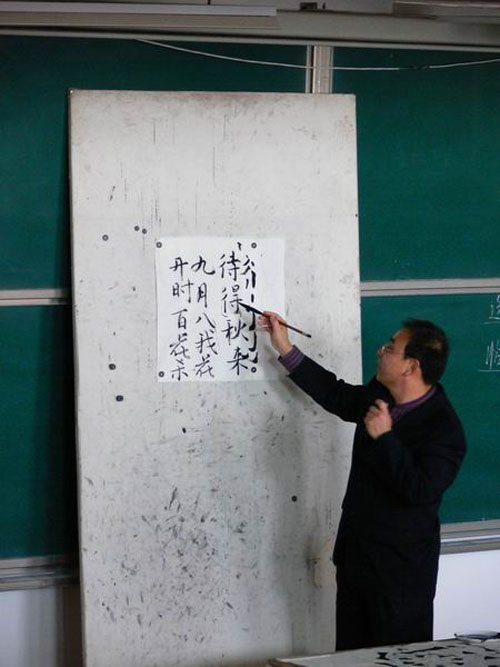 待得秋来
九月八我花
开时百花杀